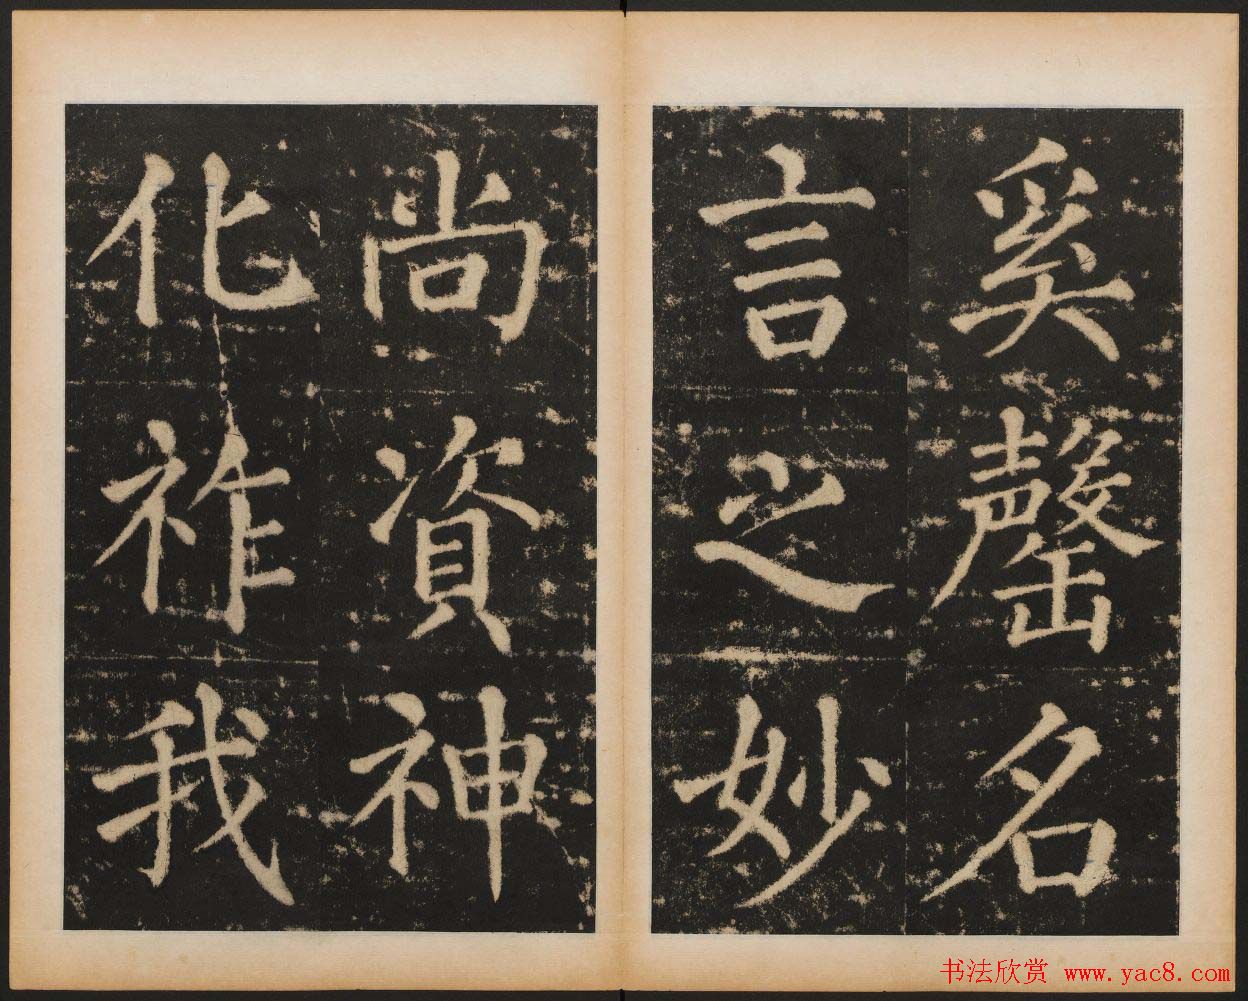 奚罄名
言之妙
尚資神
化祚我
书法欣赏 www.yac8.com